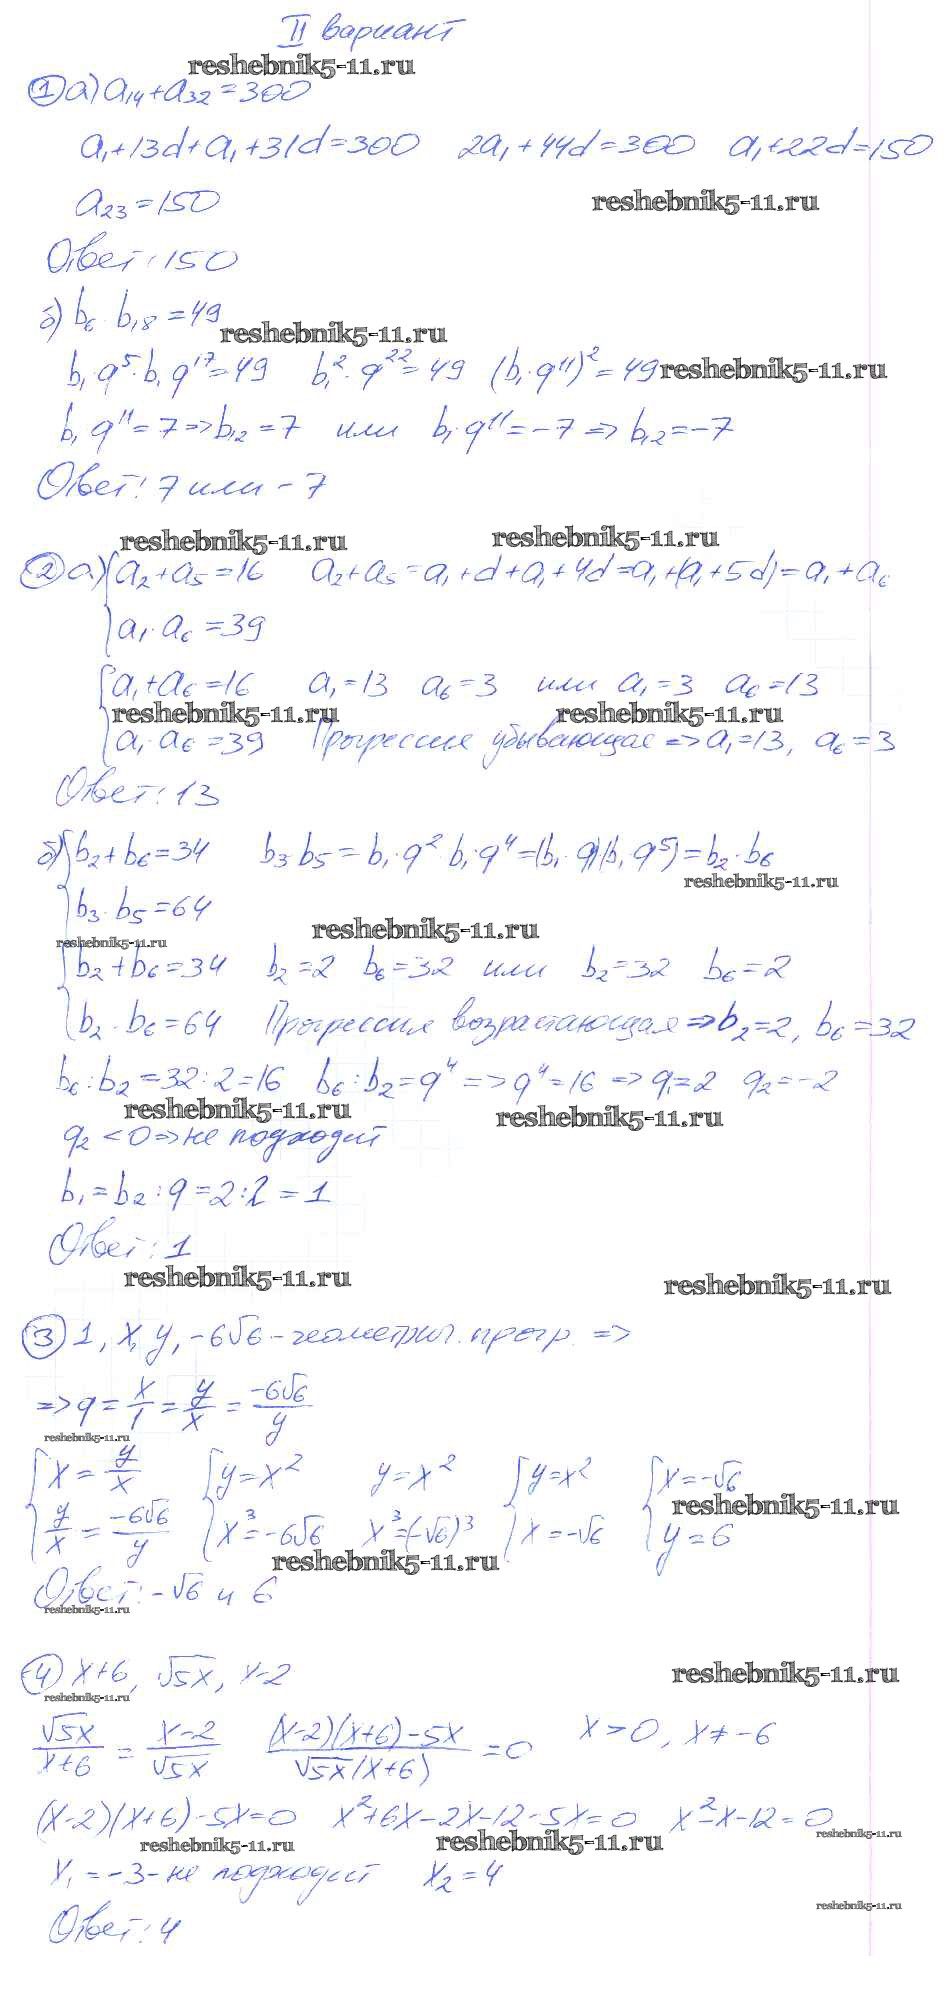 II вариант
reshebnik5-11.ru
① а) a₁₄+a₃₂=300
a₁+13d+a₁+31d=300 2a₁+44d=300 a₁+22d=150
a₂₃=150
reshebnik5-11.ru
Ответ: 150
б) b₆·b₁₈=49
reshebnik5-11.ru
b₁·q⁵·b₁q¹⁷=49 b₁²·q²²=49 (b₁·q¹¹)²=49
reshebnik5-11.ru
b₁q¹¹=7=>b₁₂=7 или b₁·q¹¹=-7=>b₁₂=-7
Ответ: 7 или -7
reshebnik5-11.ru reshebnik5-11.ru
② а) {a₂+a₅=16 a₂+a₅=a₁+d+a₁+4d=a₁+(a₁+5d)=a₁+a₆
a₁·a₆=39
{a₁+a₆=16 a₁=13 a₆=3 или a₁=3 a₆=13
reshebnik5-11.ru reshebnik5-11.ru
a₁·a₆=39 Прогрессия убывающая=>a₁=13, a₆=3
Ответ: 13
б) {b₂+b₆=34 b₃·b₅=b₁·q²·b₁·q⁴=(b₁·q)(b₁·q⁵)=b₂·b₆
reshebnik5-11.ru
b₃·b₅=64
reshebnik5-11.ru
reshebnik5-11.ru
{b₂+b₆=34 b₂=2 b₆=32 или b₂=32 b₆=2
b₂·b₆=64 Прогрессия возрастающая=>b₂=2, b₆=32
b₆:b₂=32:2=16 b₆:b₂=q⁴=>q⁴=16=>q₁=2 q₂=-2
reshebnik5-11.ru reshebnik5-11.ru
q₂<0=>не подходит
b₁=b₂:q=2:2=1
Ответ: 1
reshebnik5-11.ru reshebnik5-11.ru
③ 1, x, y, -6√6-геометрич. прогр.=>
=>q=x/1=y/x=-6√6/y
reshebnik5-11.ru
{x=y/x {y=x² y=x² {y=x² {x=-√6
reshebnik5-11.ru
y/x=-6√6/y x³=-6√6 x³=(-√6)³ x=-√6 y=6
reshebnik5-11.ru
Ответ: -√6 и 6
reshebnik5-11.ru
④ x+6, √5x, x-2
reshebnik5-11.ru
reshebnik5-11.ru
√5x/x+6=x-2/√5x (x-2)(x+6)-5x/√5x(x+6)=0 x>0, x≠-6
(x-2)(x+6)-5x=0 x²+6x-2x-12-5x=0 x²-x-12=0
reshebnik5-11.ru reshebnik5-11.ru reshebnik5-11.ru
x₁=-3-не подходит x₂=4
reshebnik5-11.ru
Ответ: 4